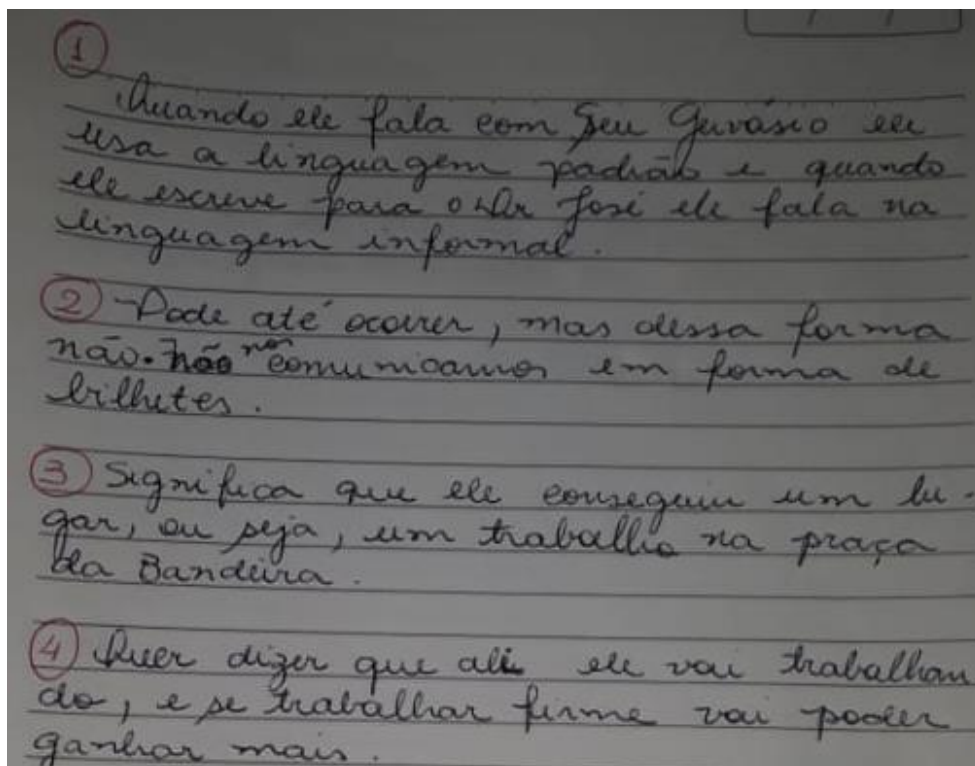 1
Quando ele fala com Seu Gervásio ele
usa a linguagem padrão e quando
ele escreve para o Dr José ele fala na
linguagem informal.
2 Pode até ocorrer, mas dessa forma
não. não nos comunicamos em forma de
bilhetes.
3 Significa que ele conseguiu um lu-
gar, ou seja, um trabalho na praça
da Bandeira.
4 Quer dizer que ali ele vai trabalhan
do, e se trabalhar firme vai poder
ganhar mais.